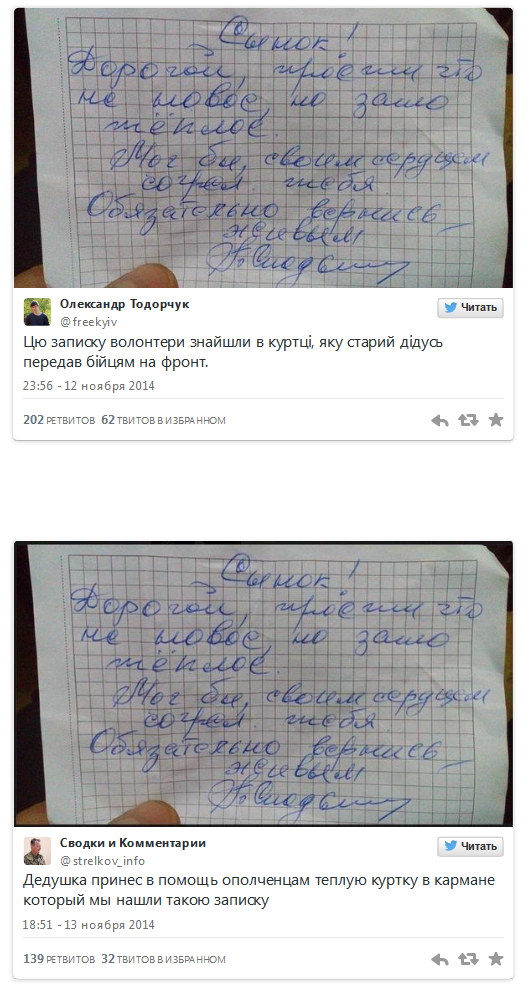 Сынок!
Дорогой, прости что
не новое, но зато
тёплое.
Мог бы, своим сердцем
согрел тебя.
Обязательно вернись
живым
Олександр Тодорчук
@freekyiv
Читать
Цю записку волонтери знайшли в куртці, яку старий дідусь
передав бійцям на фронт.
23:56 - 12 ноября 2014
202 РЕТВИТОВ 62 ТВИТОВ В ИЗБРАННОМ
Сынок!
Дорогой, прости что
не новое, но зато
тёплое.
Мог бы, своим сердцем
согрел тебя.
Обязательно вернись
живым
Сводки и Комментарии
@strelkov_info
Читать
Дедушка принес в помощь ополченцам теплую куртку в кармане
который мы нашли такою записку
18:51 - 13 ноября 2014
139 РЕТВИТОВ 32 ТВИТОВ В ИЗБРАННОМ